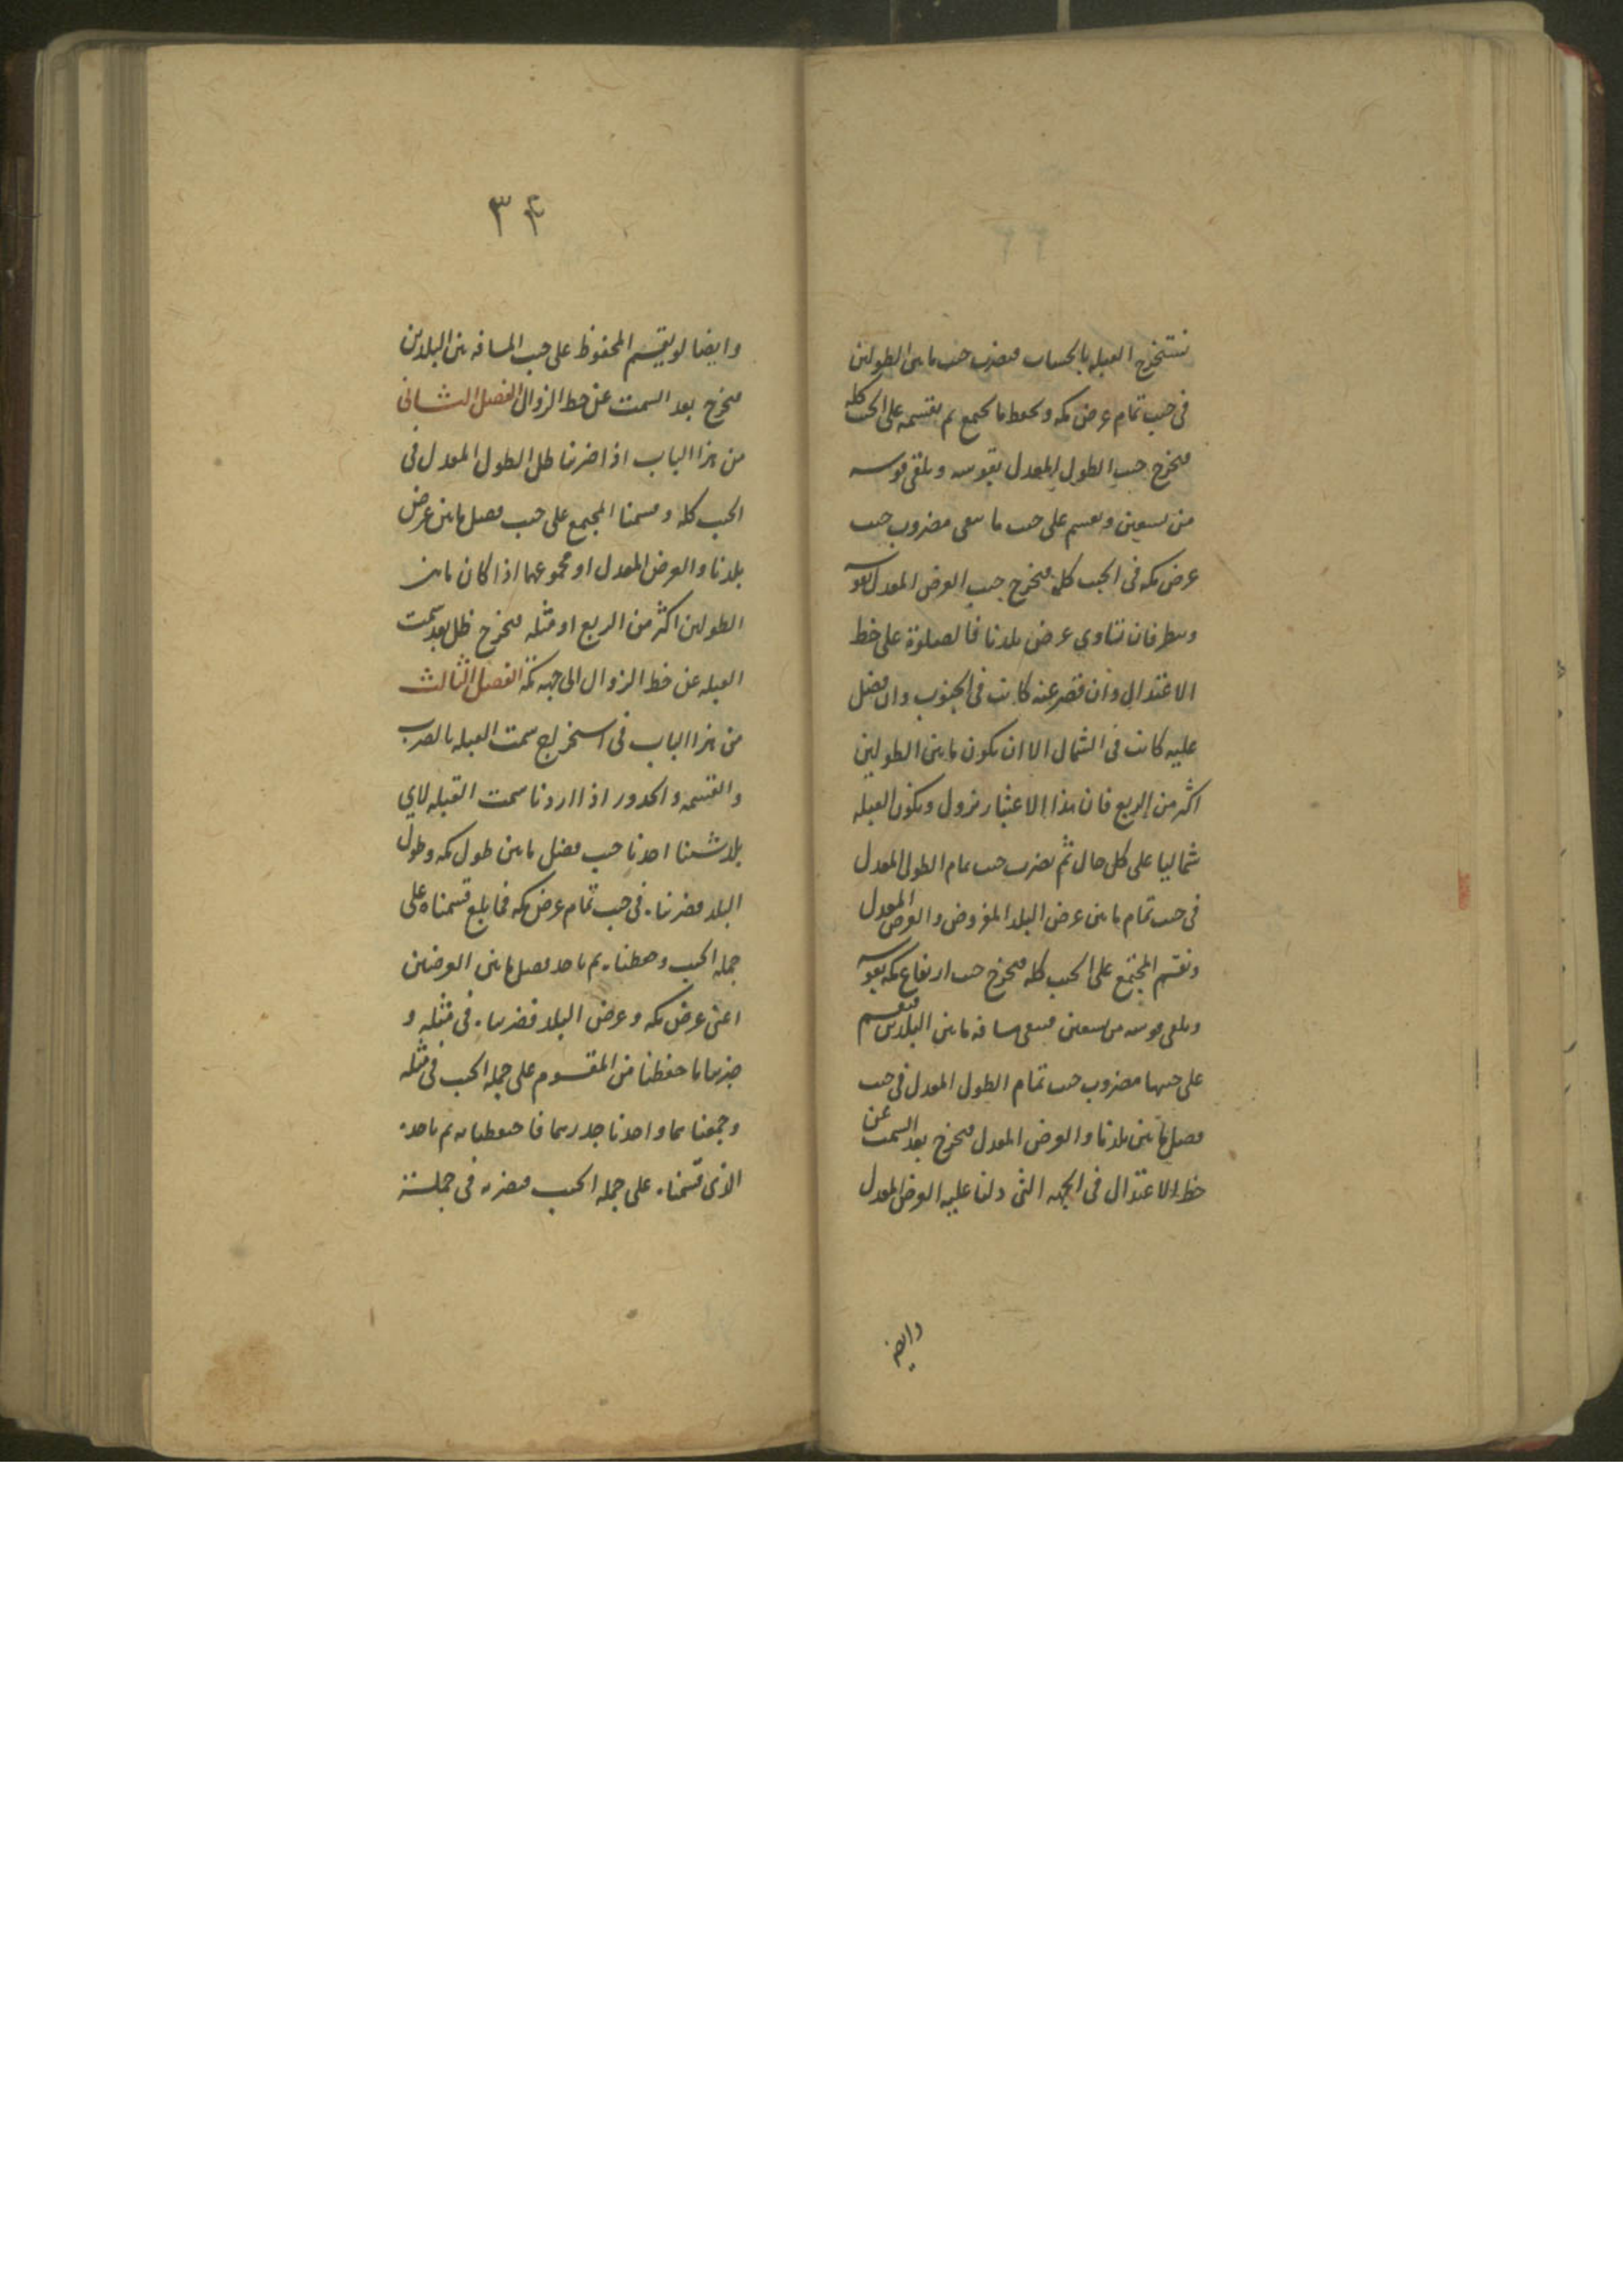 نستخرج القبله بالحساب فيضرب جيب ما بين الطولين
في جيب تمام عرض مكه ويحفظ ما يجتمع ثم يقسمه على الجيب كله
فيخرج جيب الطول المعدل يقوسه ويلقى قوسه
من تسعين ويقسم على جيب ما يبقى مضروب جيب
عرض مكه في الجيب كله فيخرج جيب العرض المعدل يقوسه
وينظر فان تساوي عرض بلدنا فالصلوة على خط
الاعتدال وان قصر عنه كانت في الجنوب وان فضل
عليه كانت في الشمال الا ان يكون ما بين الطولين
اكثر من الربع فان هذا الاعتبار يزول ويكون القبله
شماليا على كل حال ثم يضرب جيب تمام الطول المعدل
في جيب تمام ما بين عرض البلد المفروض والعرض المعدل
ونقسم المجتمع على الجيب كله فيخرج جيب ارتفاع مكه يقوسه
ويلقى قوسه من تسعين فيبقى مسافه ما بين البلدين فيقسم
على جيبها مضروب جيب تمام الطول المعدل في جيب
فضل ما بين بلدنا والعرض المعدل فيخرج بعد السمت عن
خط الاعتدال في الجهه التي دلنا عليه العرض المعدل
وايضا
٣٤
وايضا لو يقسم المحفوظ على جيب المسافه بين البلدين
فيخرج بعد السمت عن خط الزوال الفصل الثاني
من هذا الباب اذا ضربنا ظل الطول المعدل في
الجيب كله وقسمنا المجتمع على جيب فضل ما بين عرض
بلدنا والعرض المعدل او مجموعهما اذا كان ما بين
الطولين اكثر من الربع او مثله فيخرج ظل بعد سمت
القبله عن خط الزوال الى جهه مكه الفصل الثالث
من هذا الباب في استخراج سمت القبله بالضرب
والقسمه والجذور اذا اردنا سمت القبله لاي
بلد شئنا اخذنا جيب فضل ما بين طول مكه وطول
البلد فضربناه في جيب تمام عرض مكه فما بلغ قسمناه على
جمله الجيب وحفظناه ثم ناخذ فضل ما بين العرضين
اعنى عرض مكه وعرض البلد فضربناه في مثله و
ضربنا ما حفظنا من المقسوم على جمله الجيب في مثله
وجمعناهما واخذنا جذرهما فاحتفظنا به ثم ناخذ
الذي قسمناه على جمله الجيب فيضربه في جملته